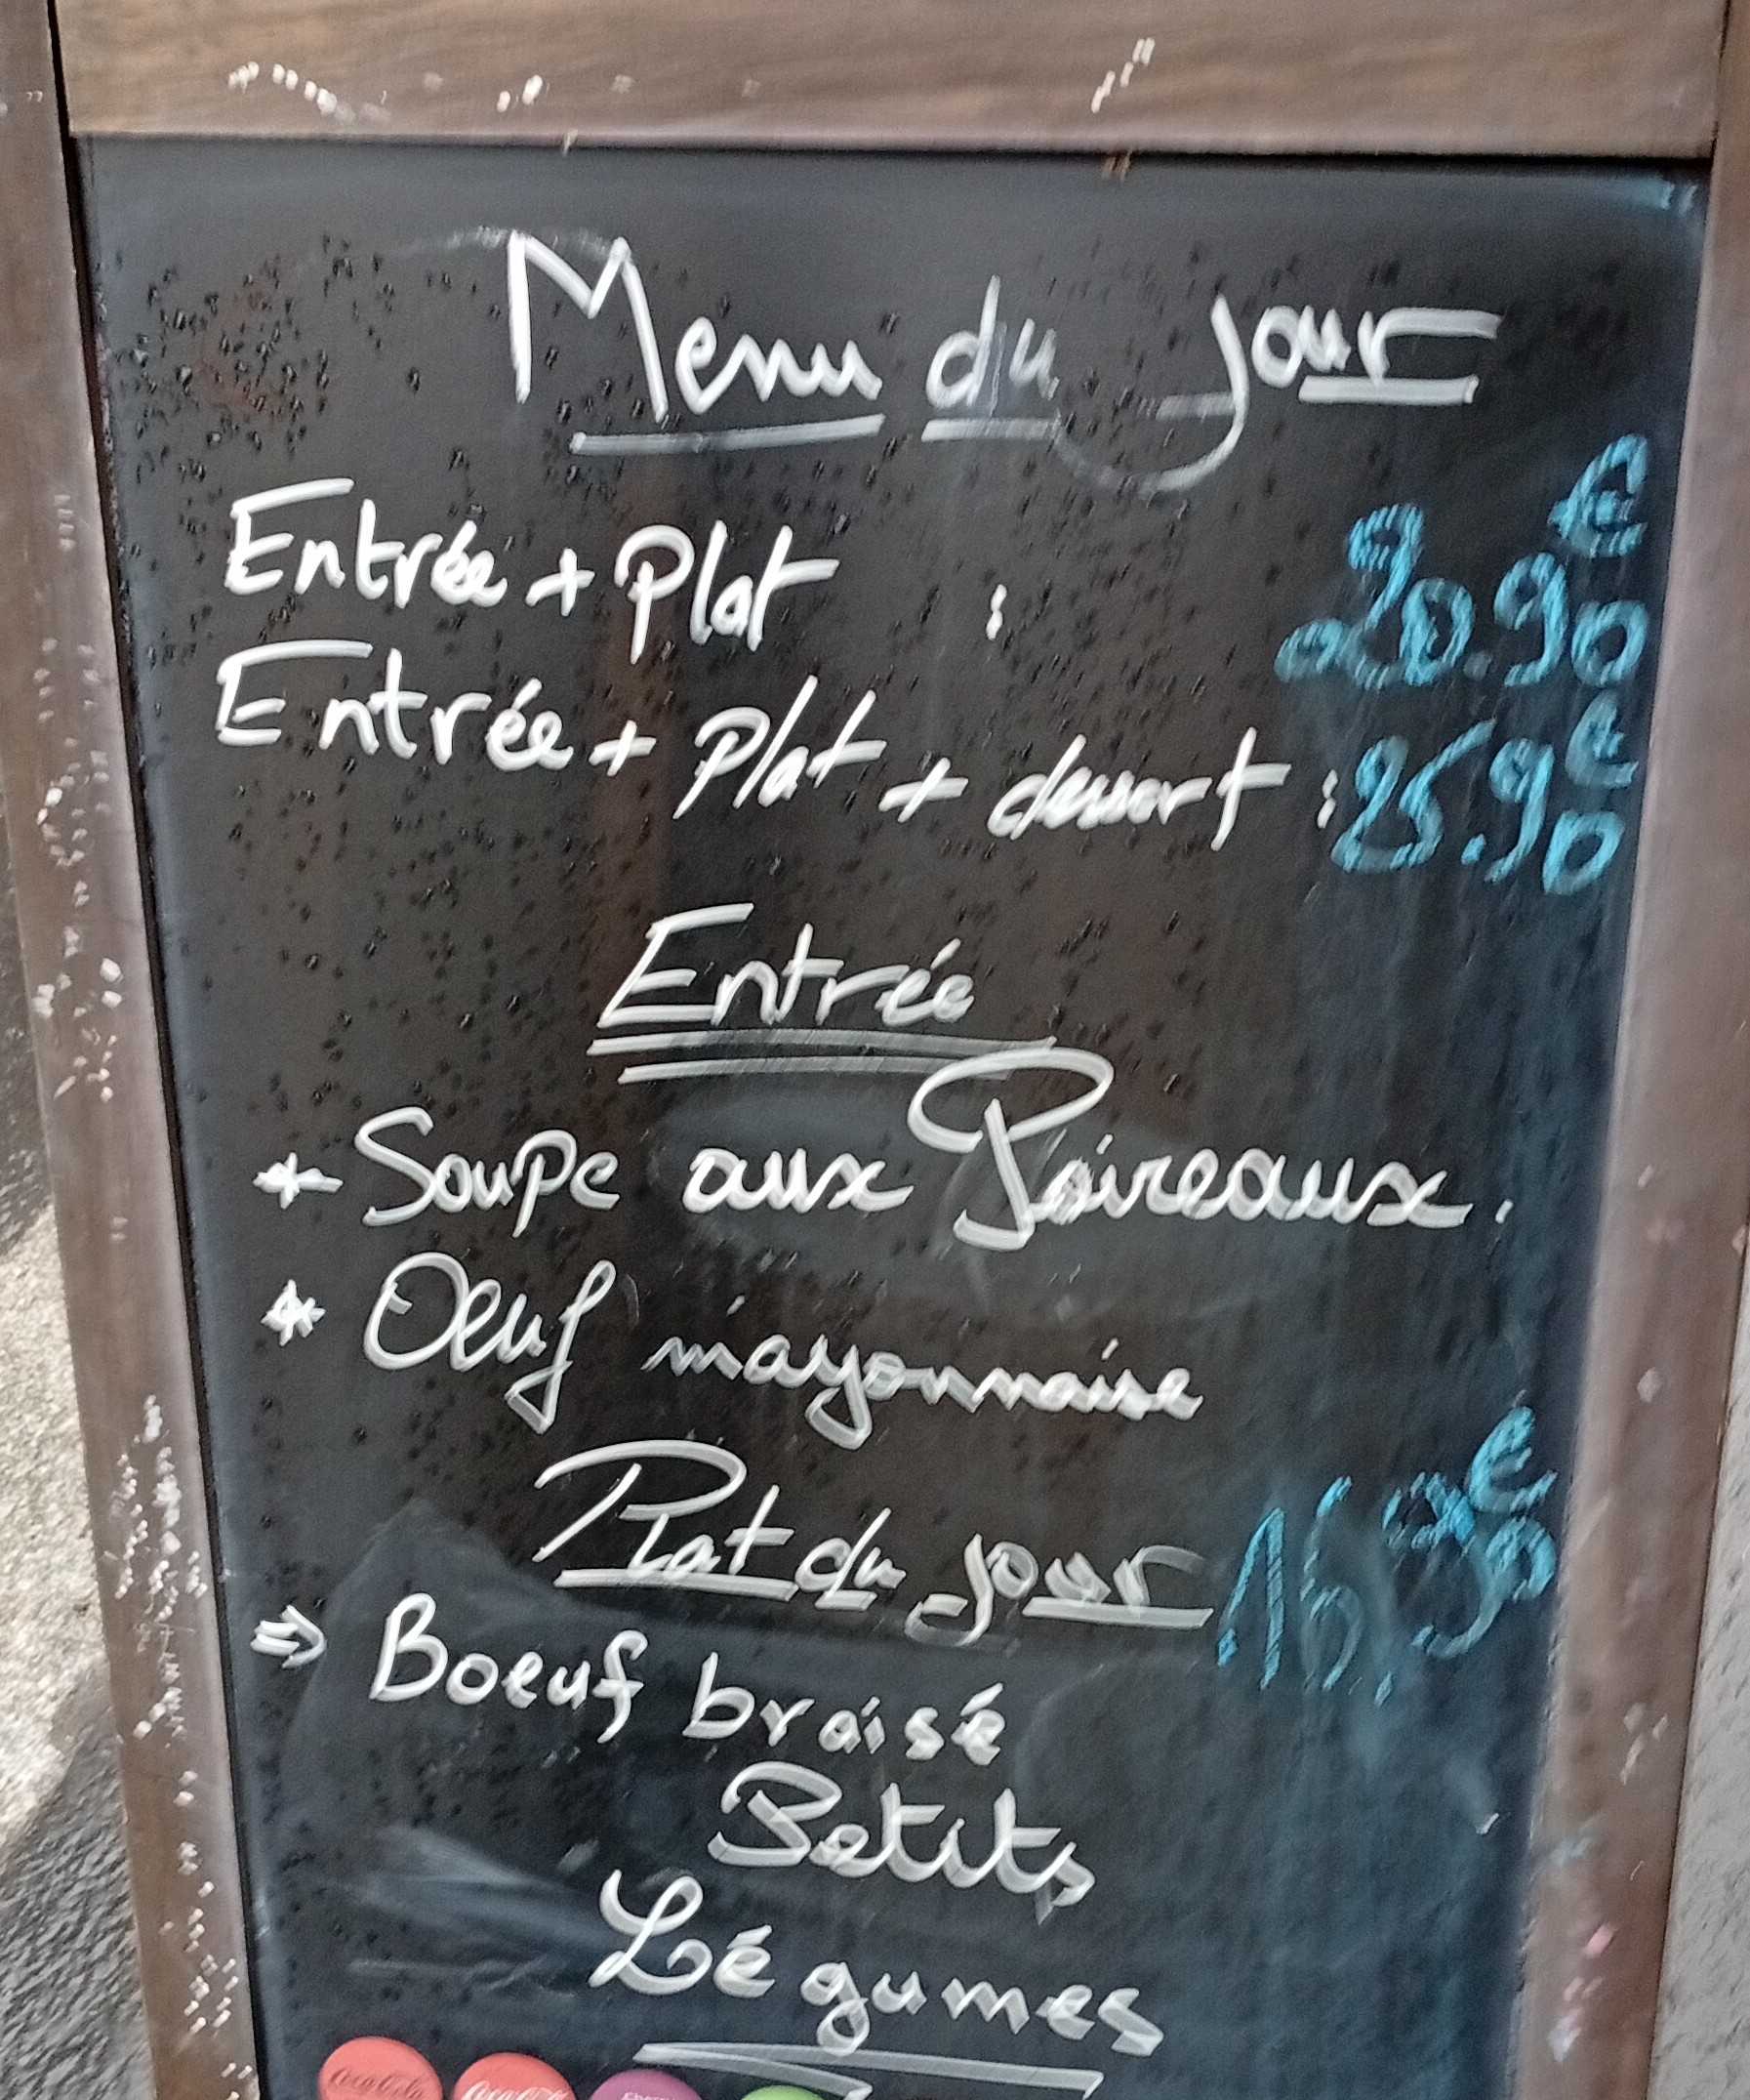 Menu du jour
Entrée + Plat : 20.90€
Entrée + Plat + dessert : 25.90€
Entrée
* Soupe aux Poireaux.
* Oeuf mayonnaise
Plat du jour 16.90€
⇒ Boeuf braisé
Petits
Légumes
Coca-Cola Coca-Cola